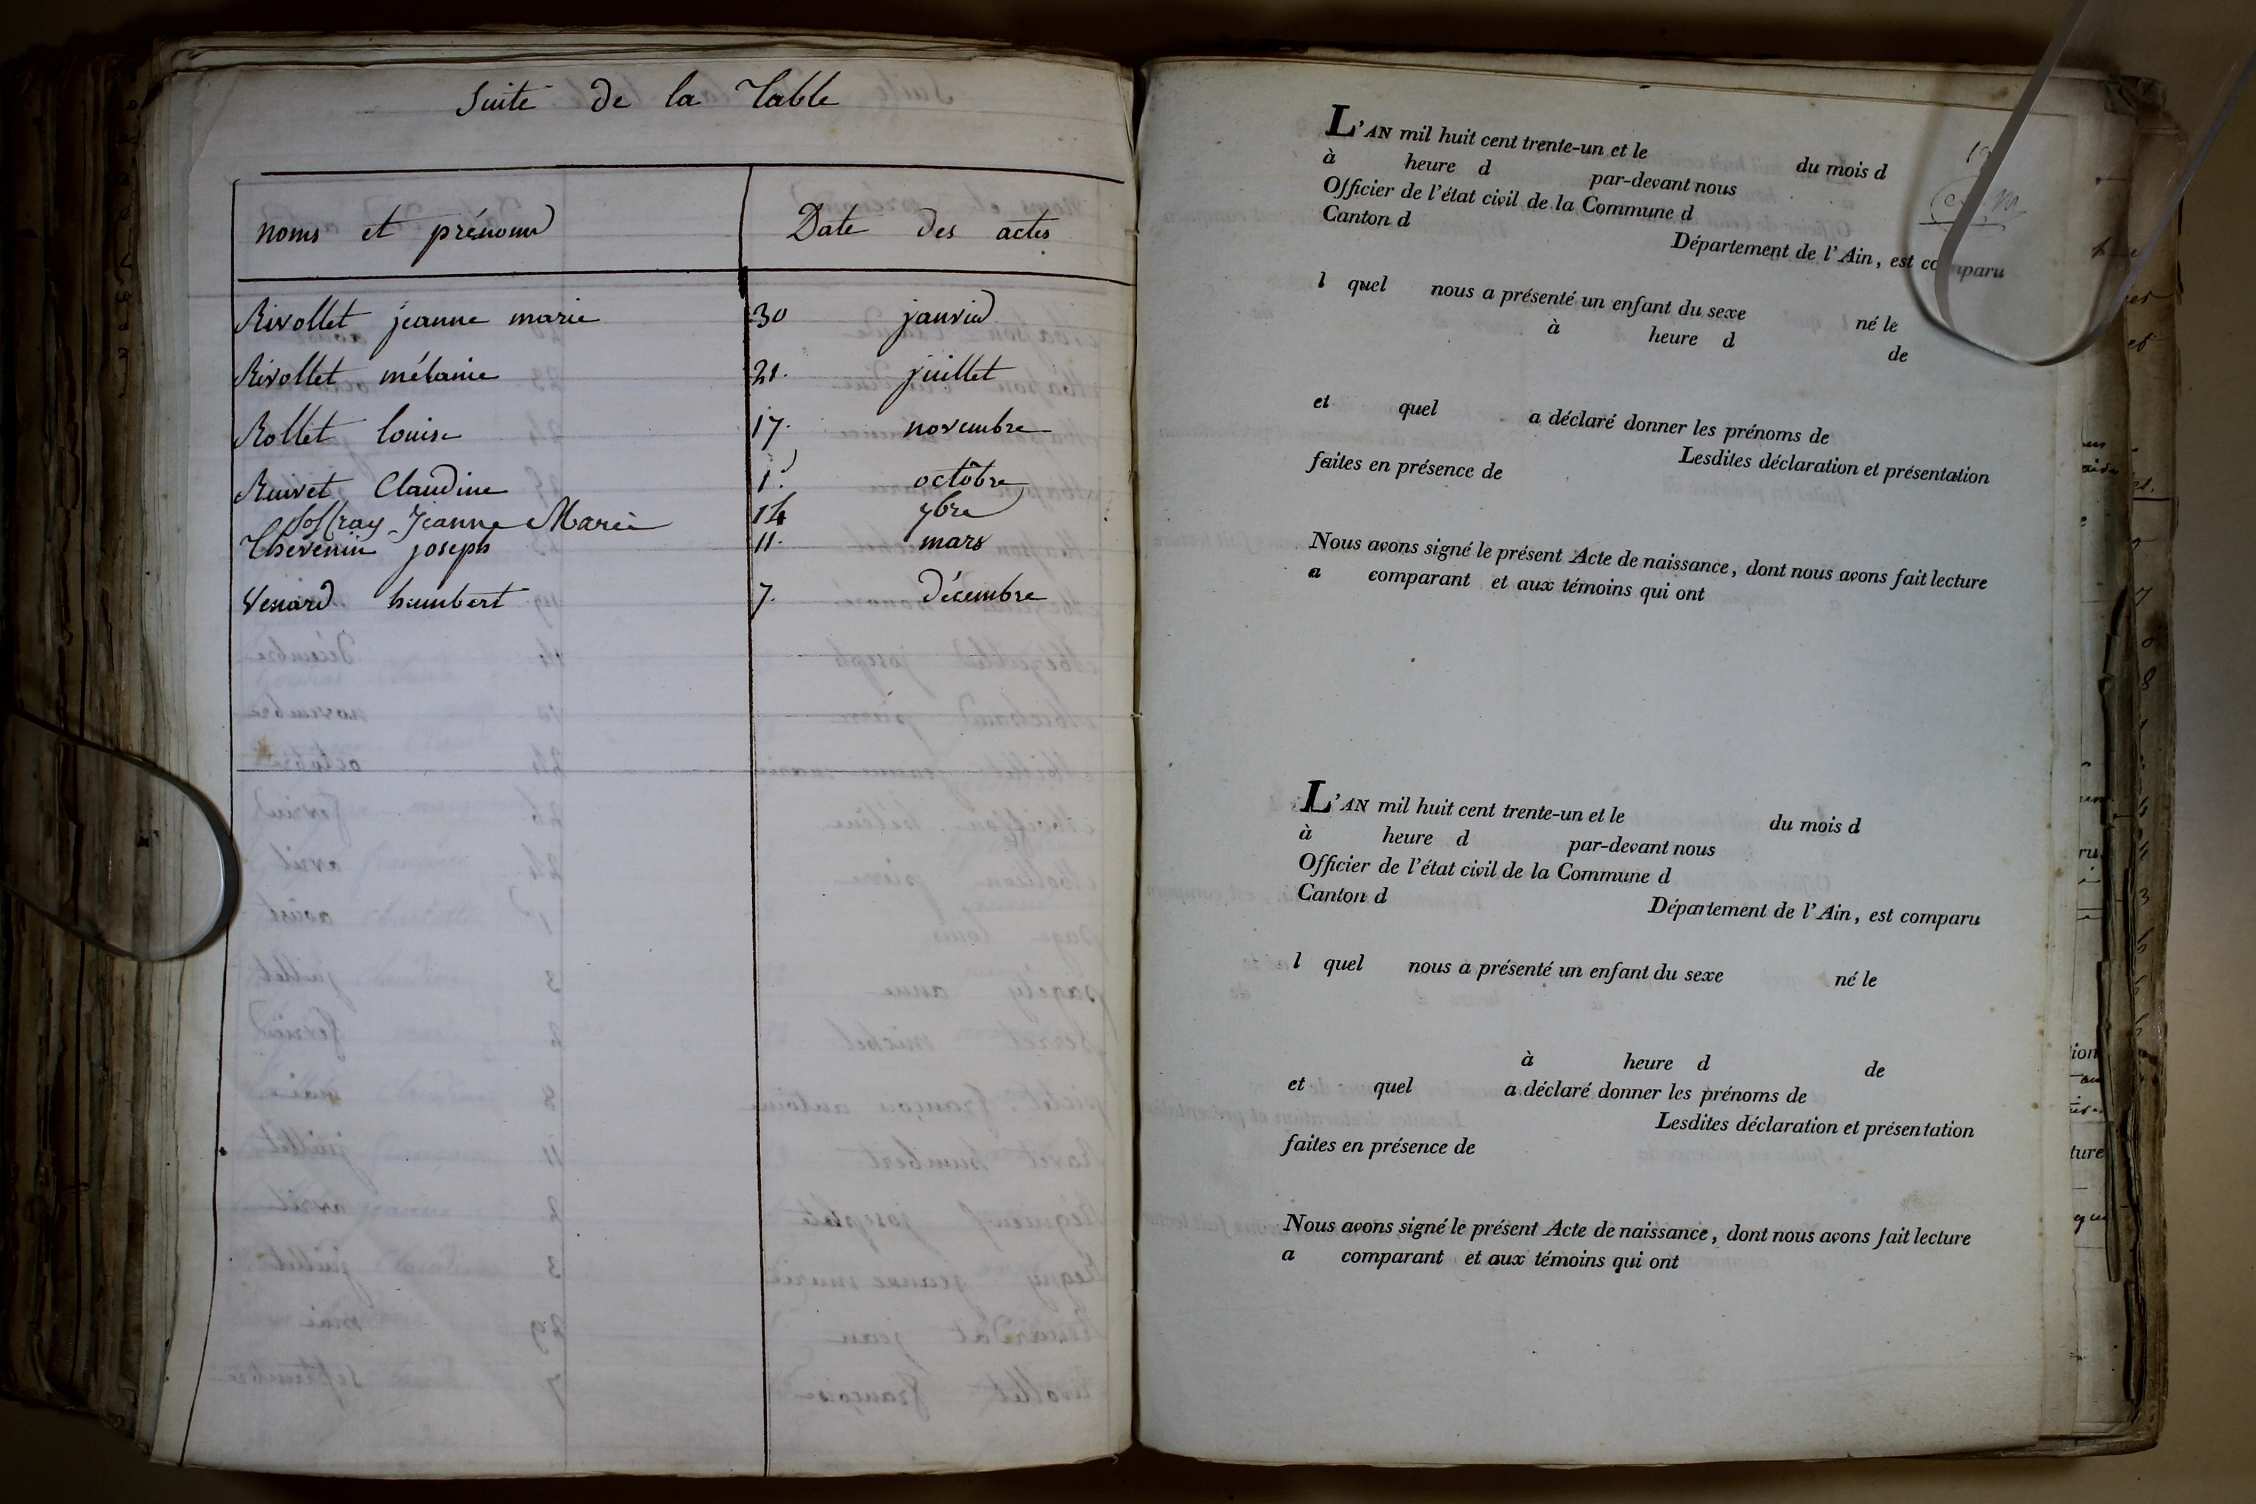 Suite de la Table
noms et prénoms Date des actes
Rivollet jeanne marie 30 janvier
Rivollet mélanie 21. juillet
Rollet louise 17. novembre
Ruivet Claudine 1.er octobre
Soffray Jeanne Marie 14 9bre
Thevenin joseph 11. mars
Venard humbert 7. décembre
L'AN mil huit cent trente-un et le du mois d
à heure d par-devant nous
Officier de l'état civil de la Commune d
Canton d Département de l'Ain, est comparu
l quel nous a présenté un enfant du sexe né le
à heure d de
et quel a déclaré donner les prénoms de
Lesdites déclaration et présentation
faites en présence de
Nous avons signé le présent Acte de naissance, dont nous avons fait lecture
a comparant et aux témoins qui ont
L'AN mil huit cent trente-un et le du mois d
à heure d par-devant nous
Officier de l'état civil de la Commune d
Canton d Département de l'Ain, est comparu
l quel nous a présenté un enfant du sexe né le
à heure d de
et quel a déclaré donner les prénoms de
Lesdites déclaration et présentation
faites en présence de
Nous avons signé le présent Acte de naissance, dont nous avons fait lecture
a comparant et aux témoins qui ont